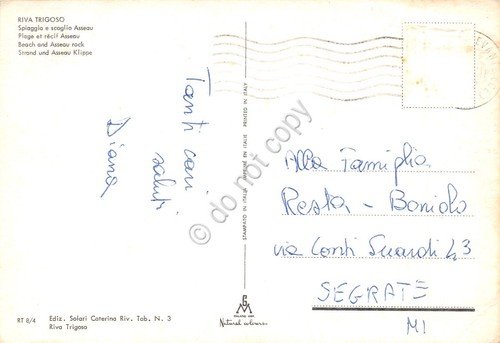 RIVA TRIGOSO
Spiaggia e scoglio Asseau
Plage et récif Asseau
Beach and Asseau rock
Strand und Asseau Klippe
Tanti cari
saluti
Diana
STAMPATO IN ITALIA IMPRIMÉ EN ITALIE PRINTED IN ITALY
Alla Famiglia
Resta - Boniolo
via Conti Suardi 43
SEGRATE
MI
Natural colours
RT 8/4
Ediz. Solari Caterina Riv. Tab. N. 3
Riva Trigoso
© do not copy